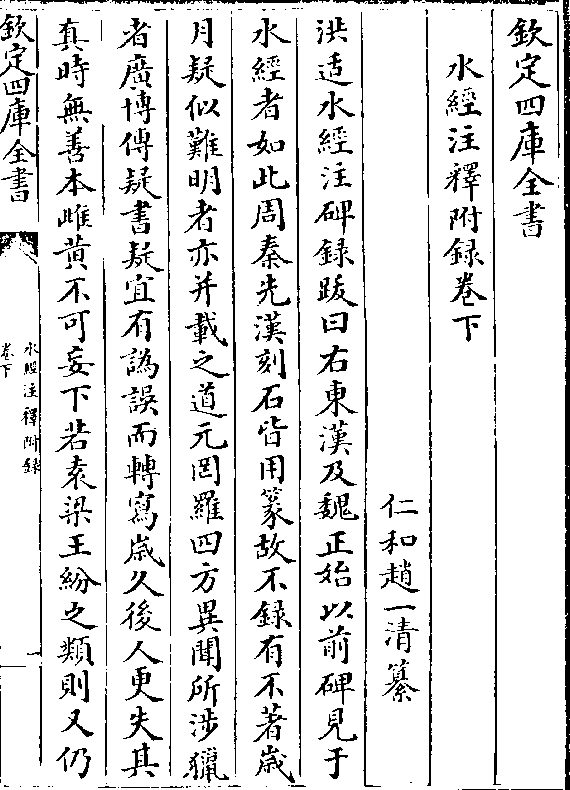 欽定四庫全書
水經注釋附録卷下
仁和趙一清纂
洪适水經注碑録跋曰右東漢及魏正始以前碑見于
水經者如此周秦先漢刻石皆用篆故不録有不著歳
月疑似難明者亦并載之道元罔羅四方異聞所涉獵
者廣博傳疑書疑宜有譌誤而轉寫歳久後人更失其
真時無善本雌黄不可妄下若袁梁王紛之類則又仍
欽定四庫全書
水經注釋附録
卷下
一